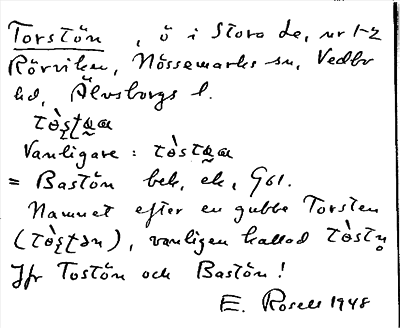 Torstön, ö i Stora Le, nr 1-2
Rörviken, Nössemarks sn, Vedbo
hd, Älvsborgs l.
Vanligare:
= Bastön bek, ek, G61.
Namnet efter en gubbe Torsten
vanligen kallad
Jfr Tostön och Bastön!
E. Rosell 1948